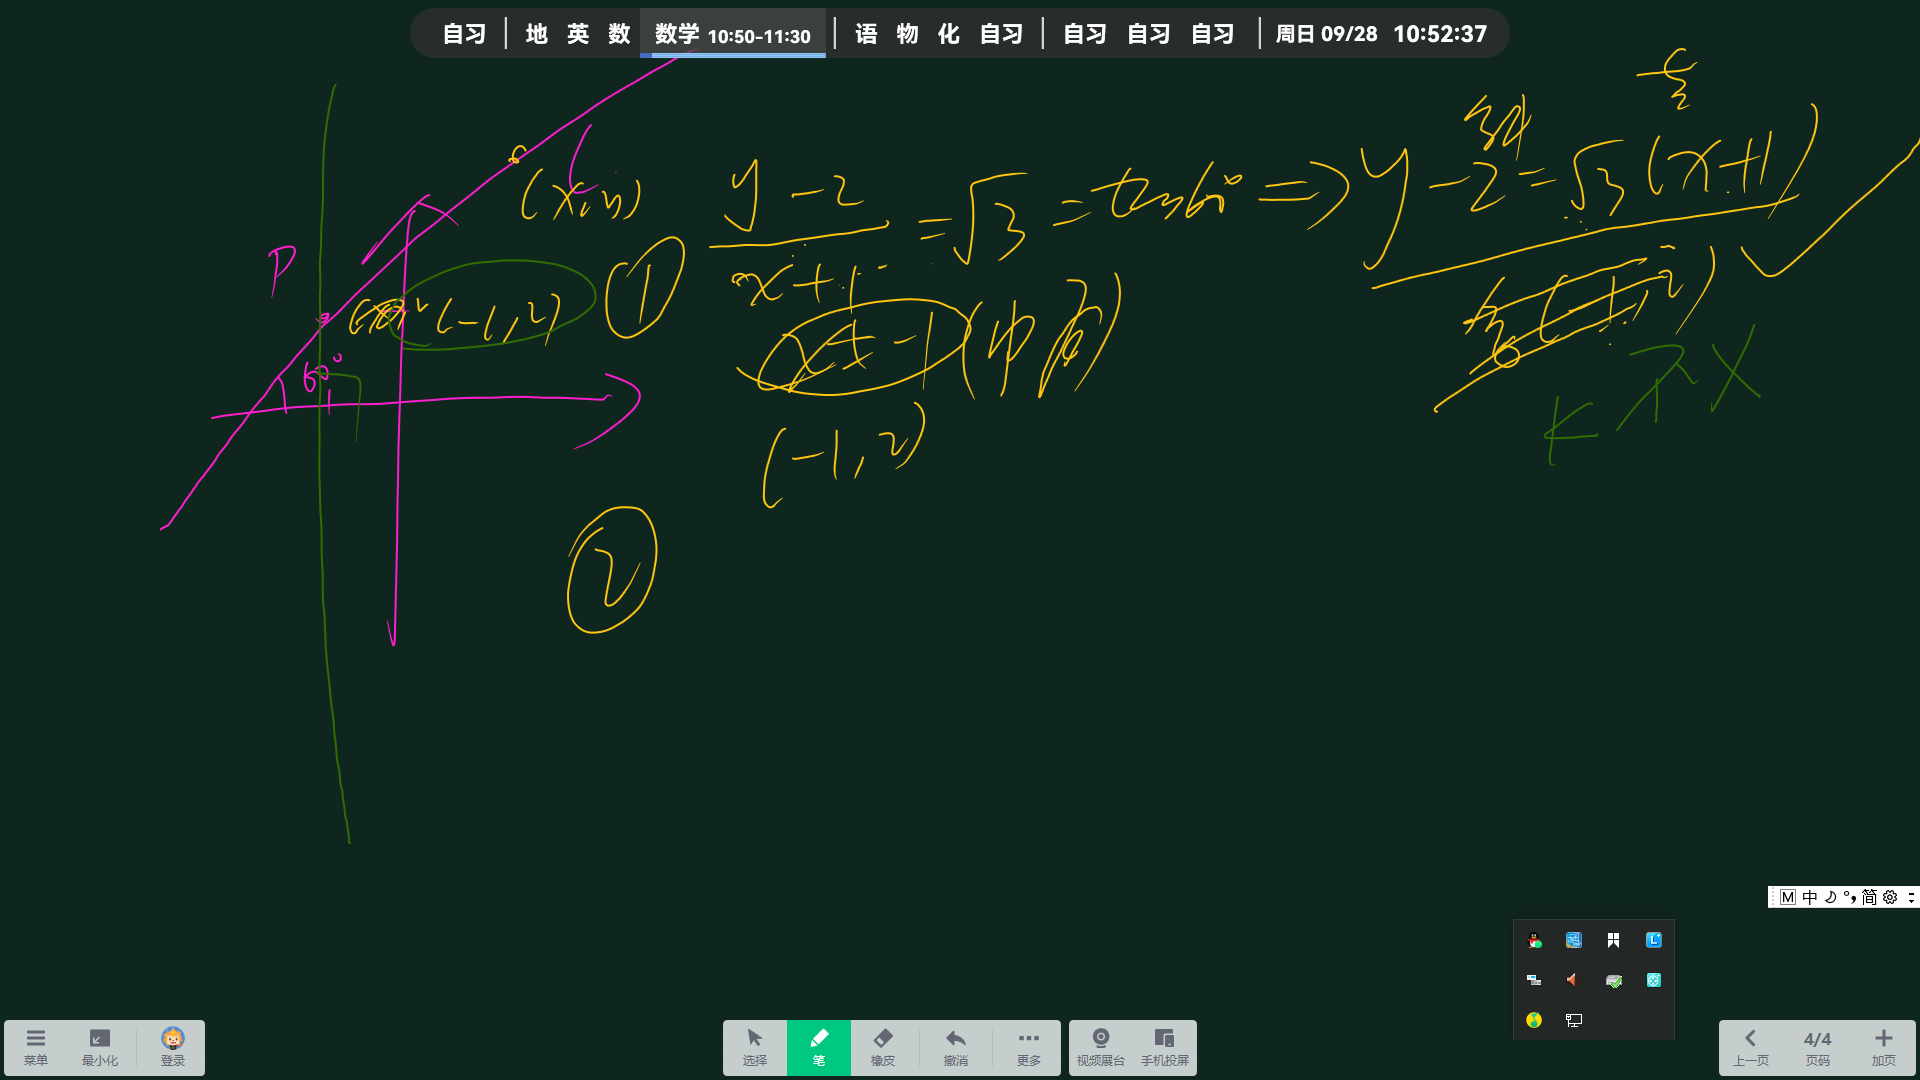 自习 | 地 英 数 数学 10:50-11:30 | 语 物 化 自习 | 自习 自习 自习 | 周日 09/28 10:52:37
P
(x, y)
(-1, 2)
60°
①
y-2
x+1
=√3=tan60° ⇒ y-2=√3(x+1)
(-1, 2)
②
M 中 简
菜单 最小化 登录 选择 笔 橡皮 撤消 更多 视频展台 手机投屏 上一页 4/4 页码 加页